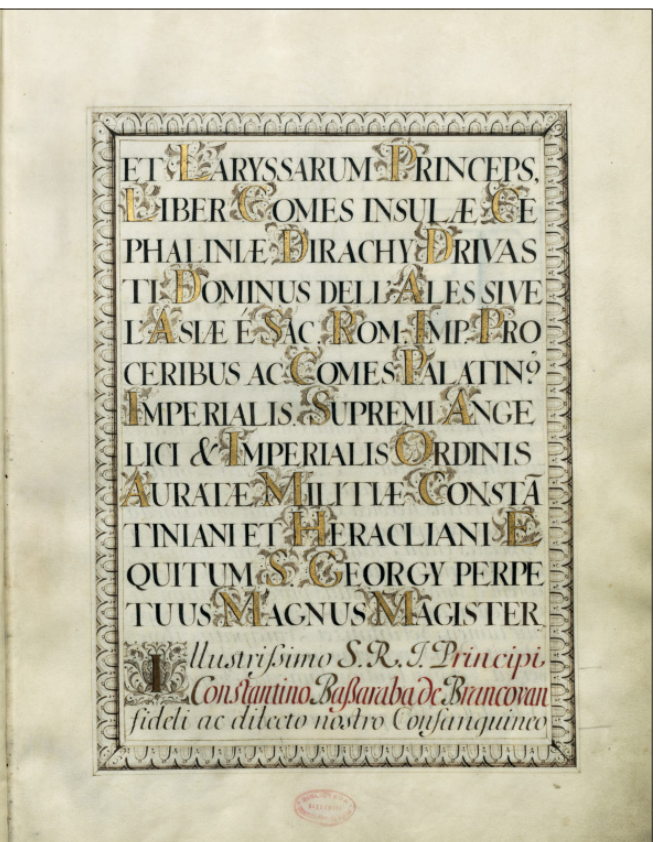 ET LARYSSARUM PRINCEPS,
LIBER COMES INSULÆ CE
PHALINIÆ DIRACHY DRIVAS
TI DOMINUS DELL'ALES SIVE
L'ASIÆ É SAC. ROM. IMP. PRO
CERIBUS AC COMES PALATIN9
IMPERIALIS. SUPREMI ANGE
LICI & IMPERIALIS ORDINIS
AURATÆ MILITIÆ CONSTĀ
TINIANI ET HERACLIANI E
QUITUM S. GEORGY PERPE
TUUS MAGNUS MAGISTER
Illustrißimo S. R. I. Principi
Constantino Baßaraba de Brancovan
fideli ac dilecto nostro Consanguineo